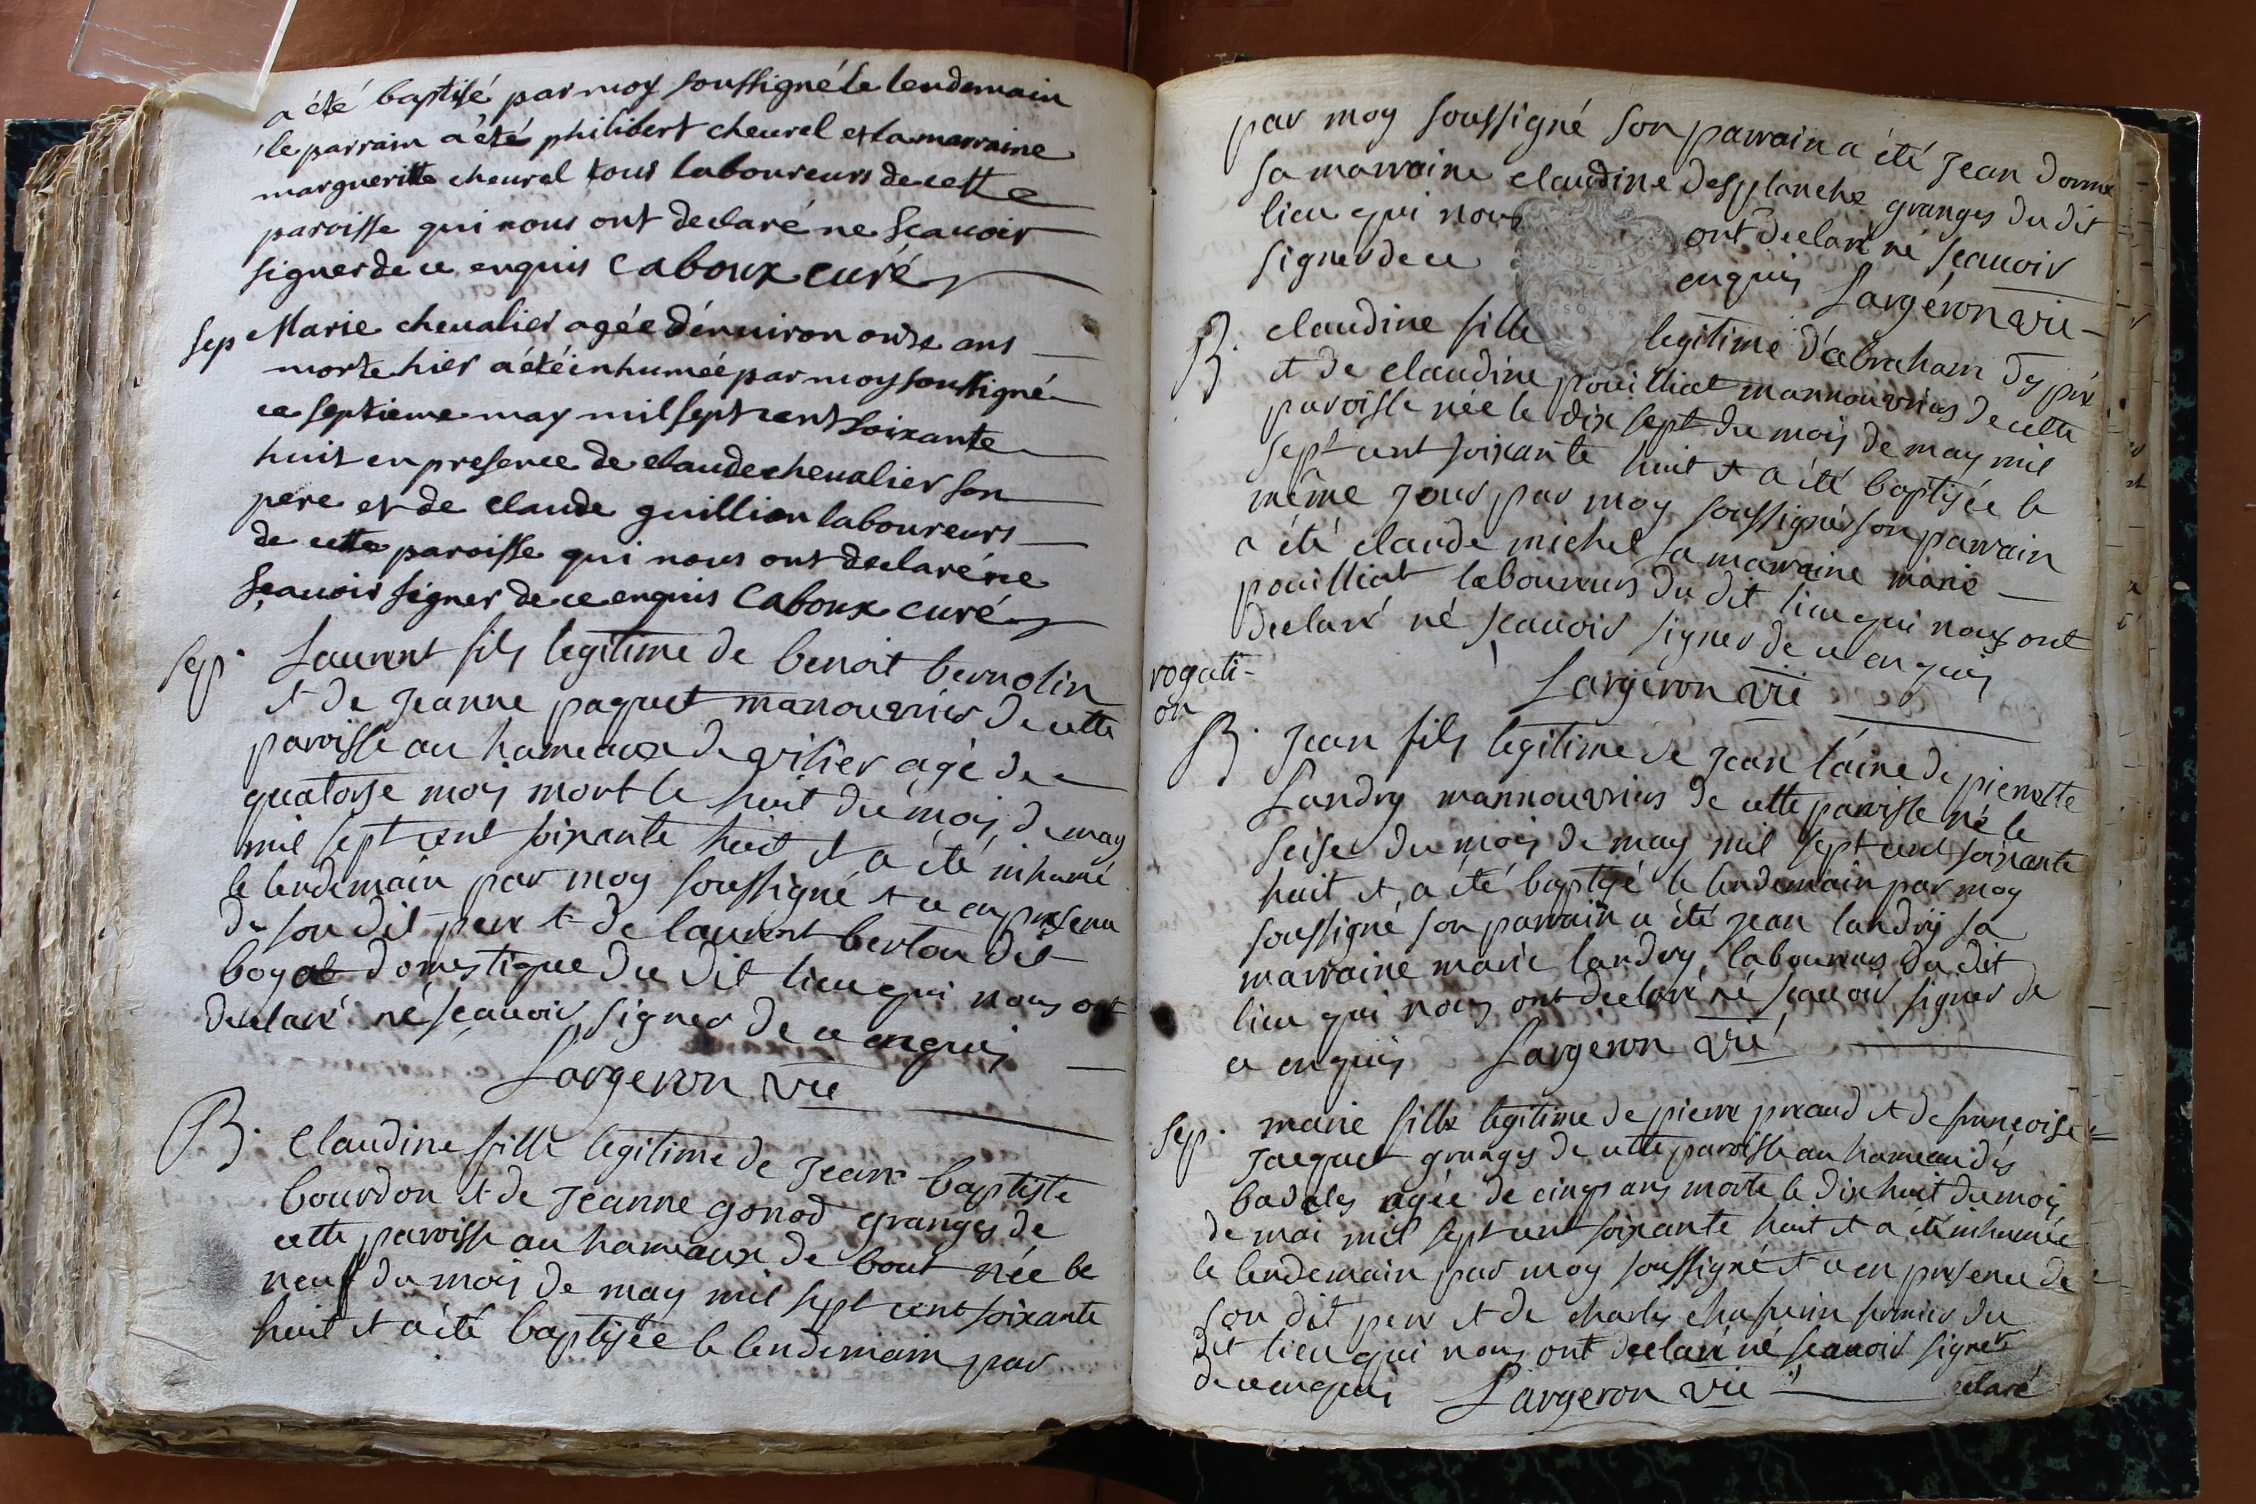 a été baptisé par moy soussigné le lendemain
le parrain a été philibert cheurel et la marraine
margueritte cheurel tous laboureurs de cette
paroisse qui nous ont declaré ne scauoir
signer de ce enquis Caboux curé
sep Marie cheualier agée d'enuiron onze ans
morte hier a été inhumée par moy soussigné
ce septieme may mil sept cent soixante
huit en presence de claude cheualier son
pere et de claude guillion laboureurs
de cette paroisse qui nous ont declaré ne
sçauoir signer de ce enquis Caboux curé
sep. Laurent fils legitime de benoit bernolin
et de Jeanne paquet manouvrier de cette
paroisse au hameaux de vilier agé de
quatorse mois mort le huit du mois de may
mil sept cent soixante huit et a été inhumé
le lendemain par moy soussigné et ce en presence
de son dit pere et de laurent berlou dit
boyat domestique du dit lieu qui nous ont
declaré né scauoir signer de ce enquis
Largeron vic
B. Claudine fille legitime de Jean baptiste
bourdon et de Jeanne gonod granges de
cette paroisse au hameaux de bout née le
neuf du mois de may mil sept cent soixante
huit et a été baptisée le lendemain par
par moy soussigné son parrain a été Jean donné
sa marraine claudine desplanche granges du dit
lieu qui nous ont declaré né scauoir
signer de ce enquis Largéron vic
B. claudine fille legitime d'abraham
et de claudine pouilliat mannouvriers de cette
paroisse née le dix sept du mois de may mil
sept cent soixante huit et a été baptisée le
même jour par moy soussigné son parrain
a été claude michel sa marraine marie
pouilliat laboureurs du dit lieu qui nous ont
declaré né scauoir signer de ce enquis
Largéron vic
rogati-
on
B. Jean fils legitime de Jean lainé de pierrette
Landry mannouvriers de cette paroisse né le
seise du mois de may mil sept cent soixante
huit et a été baptisé le lendemain par moy
soussigné son parrain a été Jean landry sa
marraine marie landry laboureurs du dit
lieu qui nous ont declaré né scauoir signer de
ce enquis Largeron vic
sep. marie fille legitime de pierre preaud et de françoise
Jacquet granges de cette paroisse au hameau des
badoles agée de cinq ans morte le dix huit du mois
de mai mil sept cent soixante huit et a été inhumée
le lendemain par moy soussigné et ce en presence de
son dit pere et de charles chaperin fermier du
dit lieu qui nous ont declaré né scauoir signer
de ce enquis Largeron vic